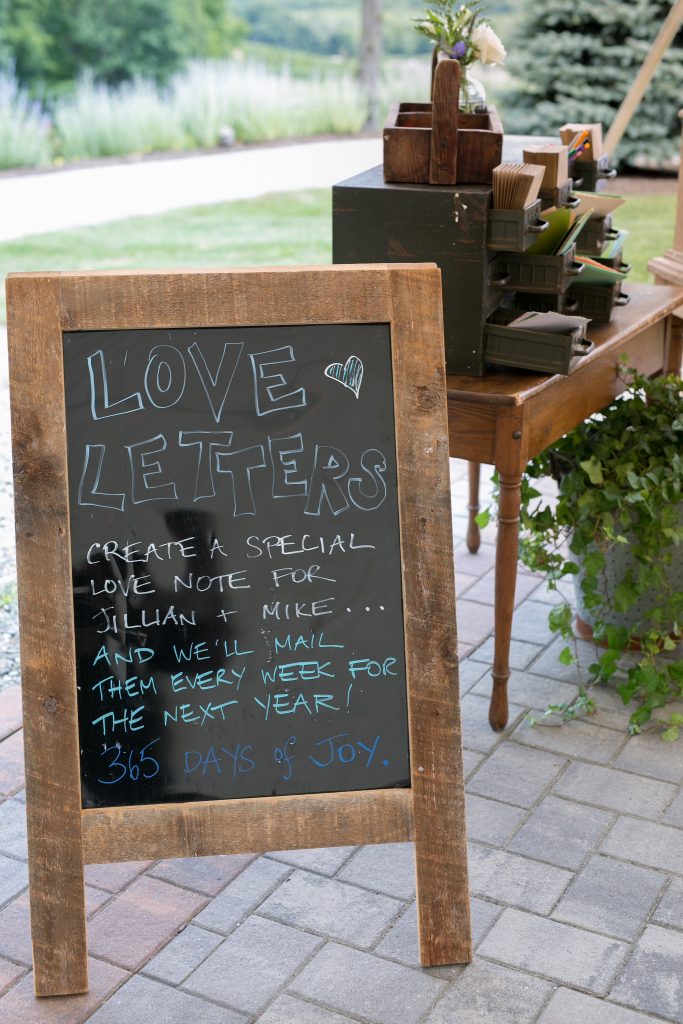 LOVE
LETTERS
CREATE A SPECIAL
LOVE NOTE FOR
JILLIAN + MIKE...
AND WE'LL MAIL
THEM EVERY WEEK FOR
THE NEXT YEAR!
365 DAYS of JOY.